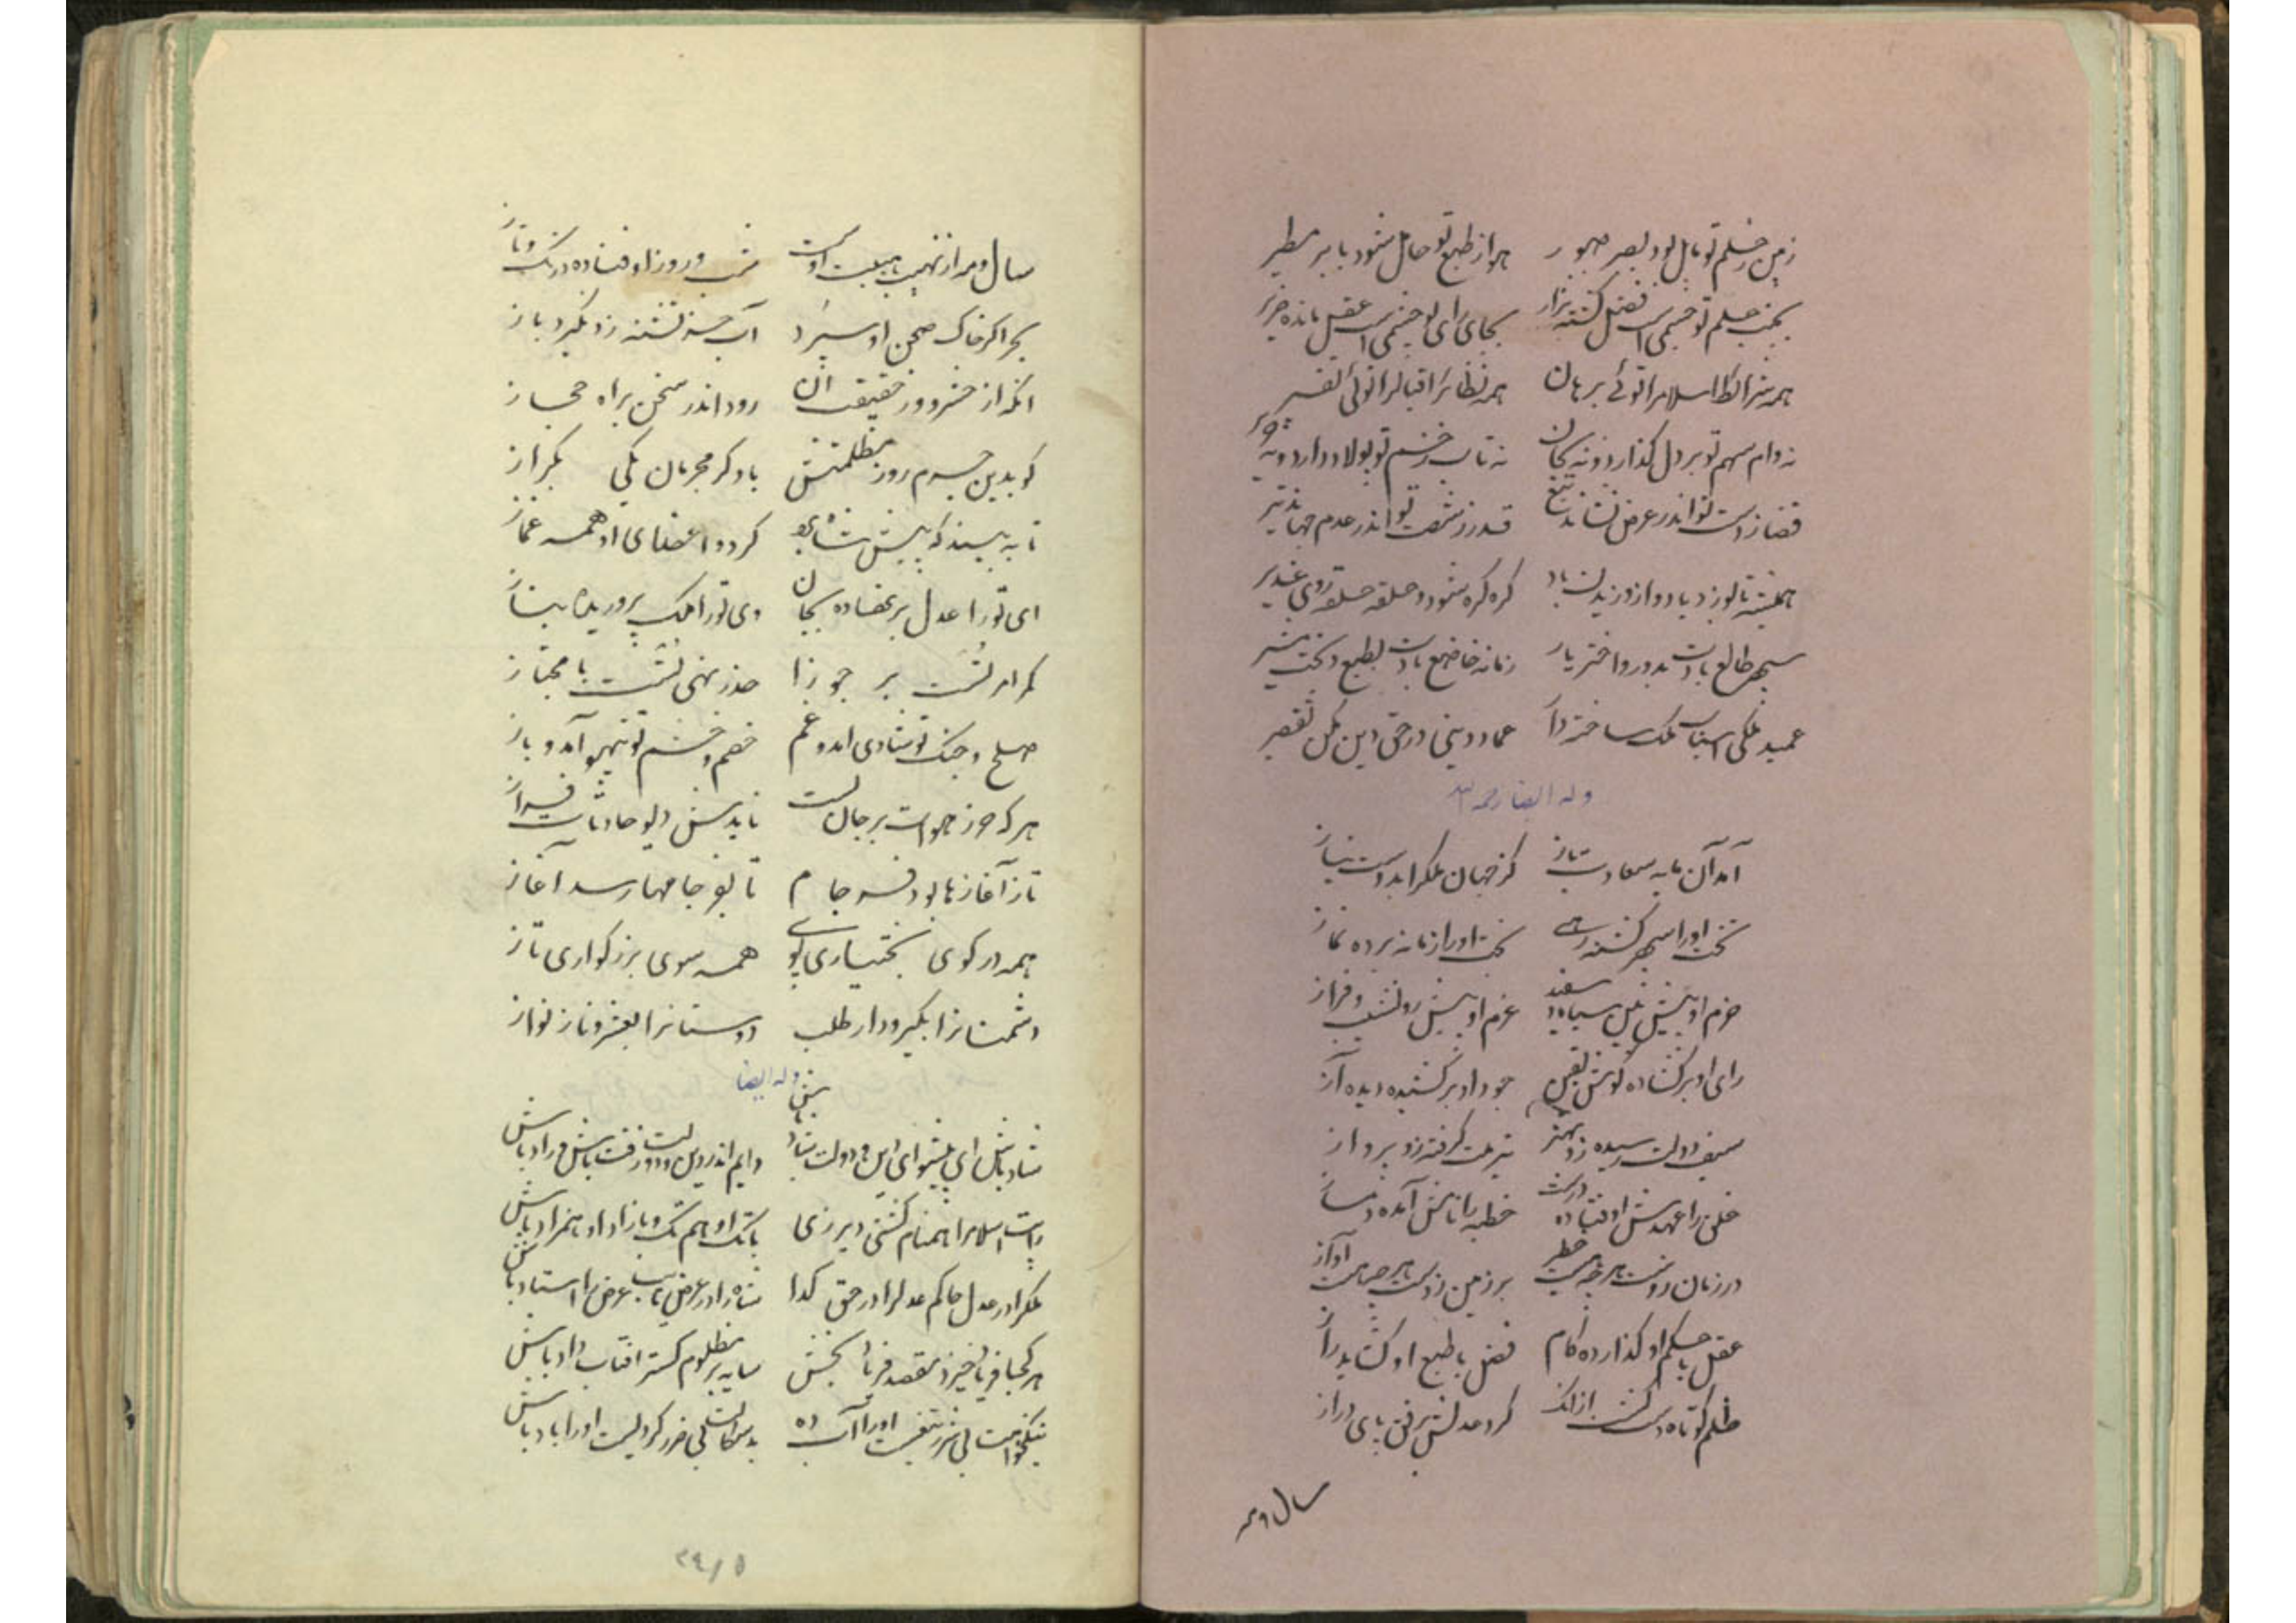 زمین ز حلم تو مایل بود بصبر صبور هوا ز طبع تو حامل شود بابر مطیر
بجنب حلم تو جسمی است فضل گشته نزار بجای رای تو چشمی است عقل مانده ضریر
همه شرائط اسلام را توئی برهان همه نظائر اقبال را توئی تفسیر
نه دام سهم تو بر دل گذارد و نه بجان نه تاب خشم تو پولاد دارد و نه
قضا ز دست تو اندر عرض نشاند تیغ قدر ز شصت تو اندر عدم جهاند تیر
همیشه تا بوزد باد و از وزیدن باد گره گره شود و حلقه حلقه روی غدیر
سپهر طالع بادت بدور و اختر یار زمانه خاضع بادت بطبع و بخت بشیر
عمید ملکی اسباب ملک ساخته دار عماد دینی در حق دین مکن تقصیر
وله ایضا رحمه الله
آمد آن مایه سعادت باز کز جهان ملک را بدوست نیاز
تخت او را سپهر گشته رهی بخت او را زمانه برده نماز
حزم او پیش بین سیاه و سفید عزم او پیش رو نشیب و فراز
رای او برگشاده گوش یقین جود او برکشیده دیده آز
سیف دولت رسیده زو بهنر نیت گرفته زو پرواز
خلق را عهدش اوفتاده درست خطبه را نامش آمده دمساز
در زمان زوست هر چه هست خطر بر زمین زوست هر چه هست آواز
عقل با حکم او گذارده گام فضل با طبع او گشاید راز
ظلم کوتاه دست گشت از آنک کرد عدلش برفق پای دراز
سال و مه
سال و مه از نهیب هیبت اوست شب و روز اوفتاده در تک و تاز
بحر اگر خاک صحن او سپرد آب جز تشنه زو نگیرد باز
آنکه از حشر و ز حقیقت آن رود اندر سخن براه مجاز
گو بدین جسیم روز مظلمتش باد کر مجرمان یکی بگراز
تا به بیند که پیش شاه بحق گردد اعضای او همه غماز
ای تو را عدل بر نهاده بجان وی تو را ملک پروریده بناز
گر امر تُست بر جوزا حذر نهی تُست با مجتاز
صلح و جنگ تو شادی آمد و غم خصم و خشم تو تیهو آمد و باز
هر که حرز هوات بر جان بست نایدش دیو حادثات فراز
تا ز آغازها بود فرجام تا بفرجامها رسد آغاز
همه در کوی بختیاری پوی همه سوی بزرگواری تاز
دشمنان را بگیر و دار طلب دوستان را بعز و ناز نواز
وله ایضا
شاد باش ای پیشوای دین و دولت شاد باش دایم اندر دین و دولت زفت باش و راد باش
رایت اسلام را همنام گشتی دیر زی با تک او هم تک و با زاد او همزاد باش
ملک را در عدل حاکم عدل را در حق گدا شاه را در عرض نایب عرض را استاد باش
هر کجا فریاد خیزد مقصد فریاد بخش سایه بر مظلوم گستر آفتاب داد باش
نیکخواهت بی شرر تفست او را آب ده بدسگالت بی ضرر گردیست او را باد باش
۳۴/۵